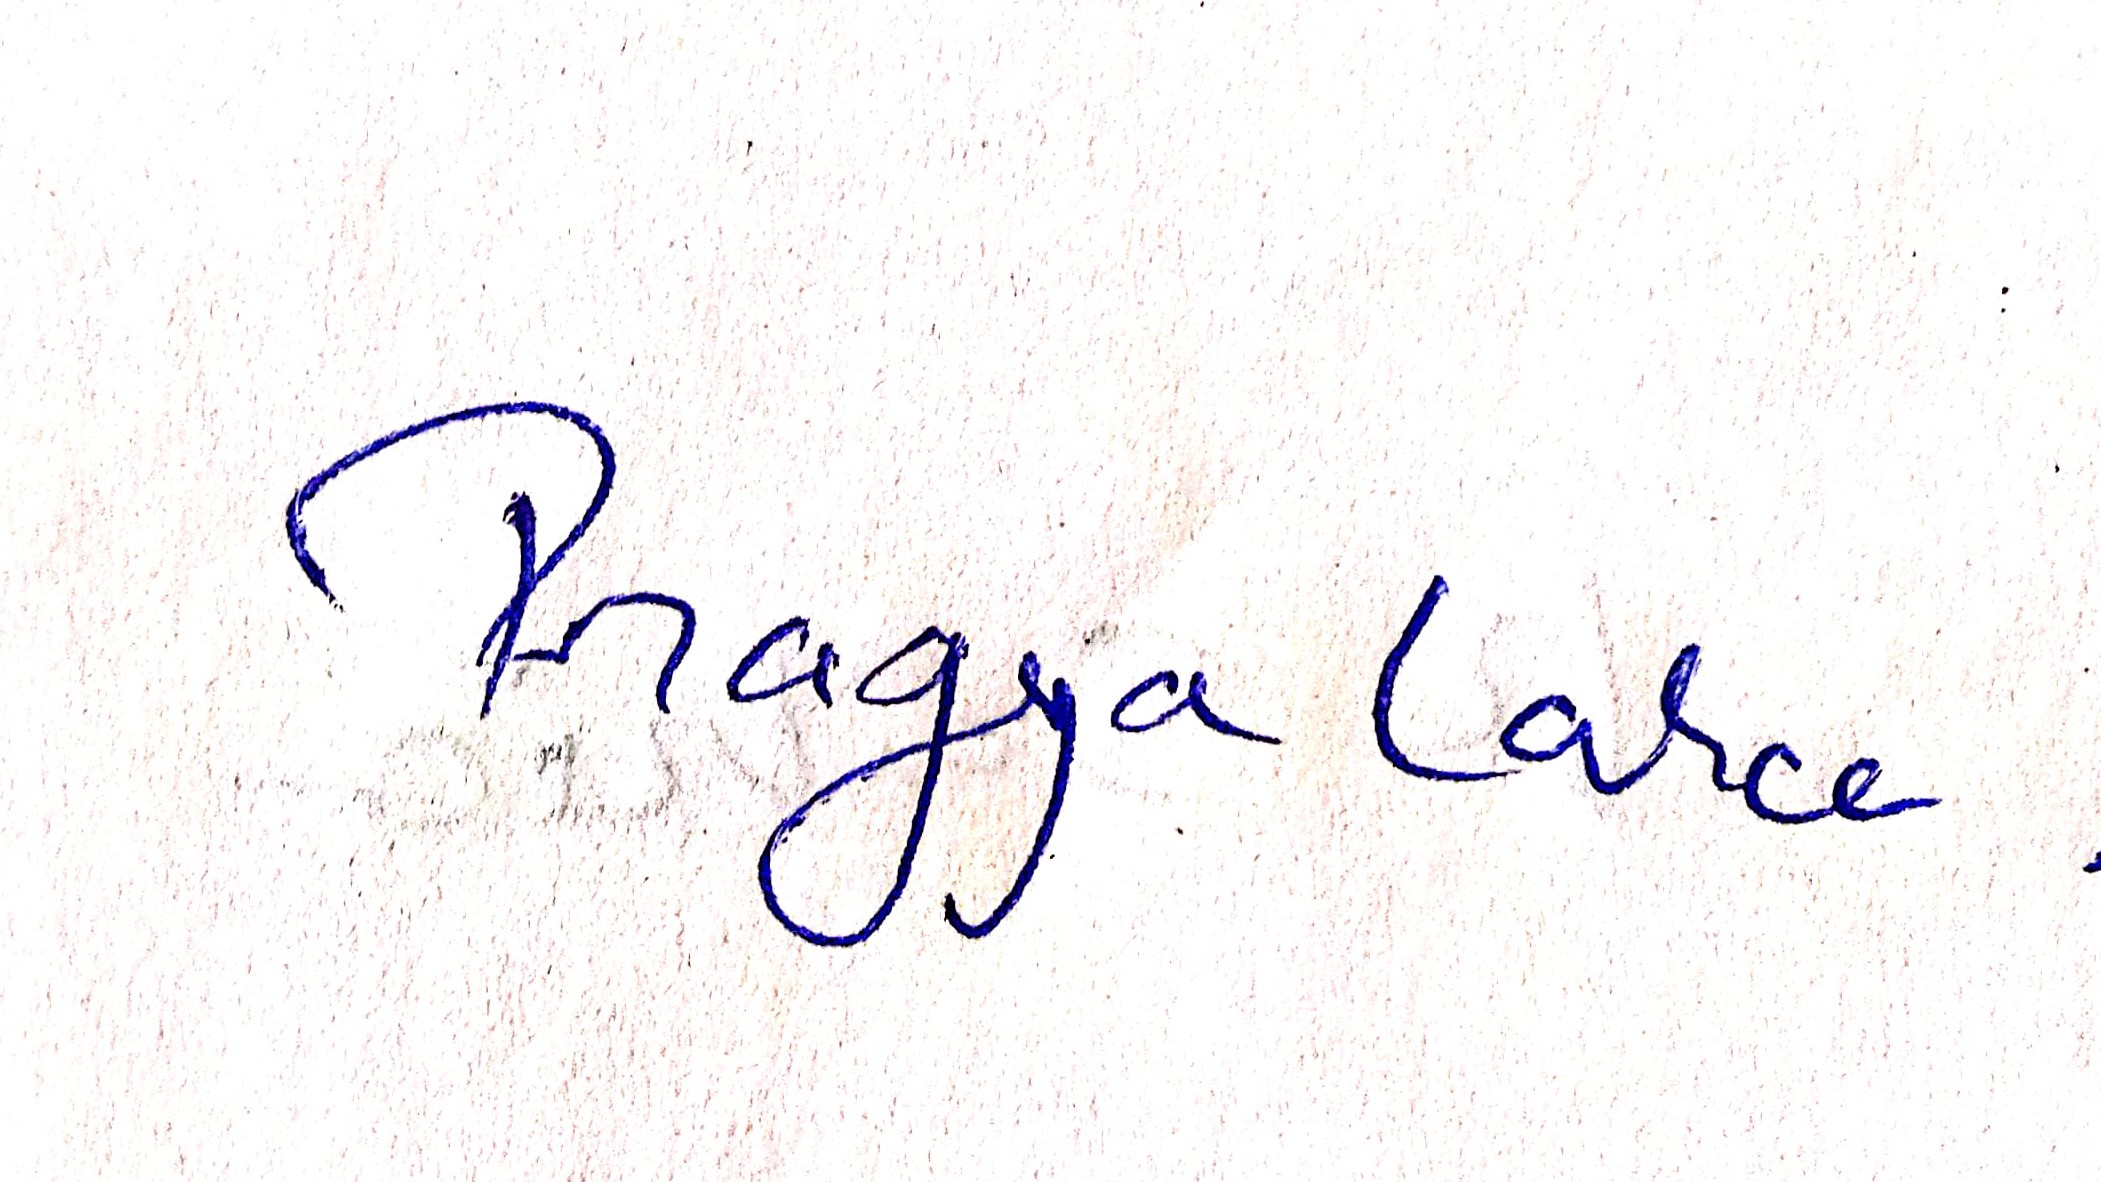 Pragya Larce